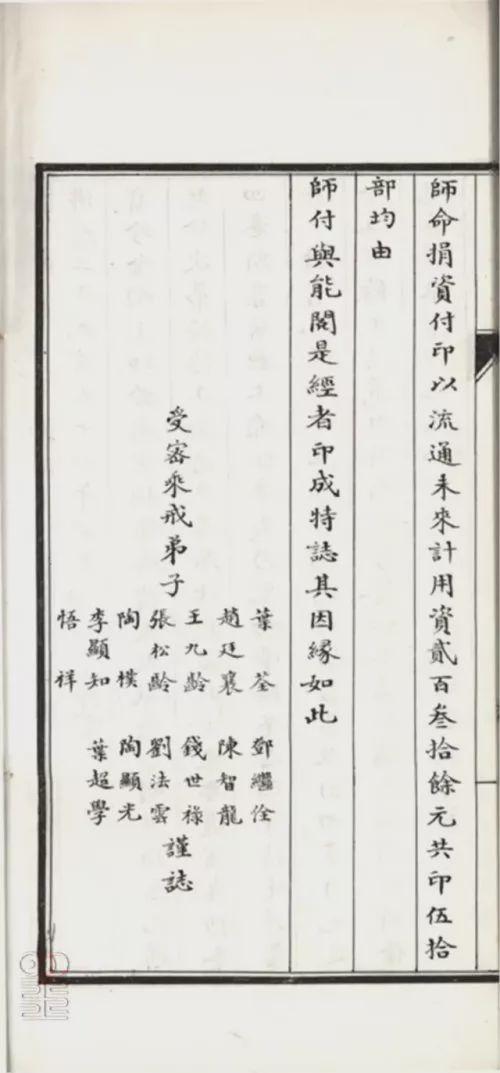 師命捐資付印以流通未來計用資貳百叄拾餘元共印伍拾
部均由
師付與能閱是經者印成特誌其因緣如此
受密乘戒弟子
葉荃 鄧繼佺
趙廷襄 陳智龍
王九齡 錢世祿
張松齡 劉法雲
陶樸 陶顯光
李顯知 葉超學
悟祥
謹誌